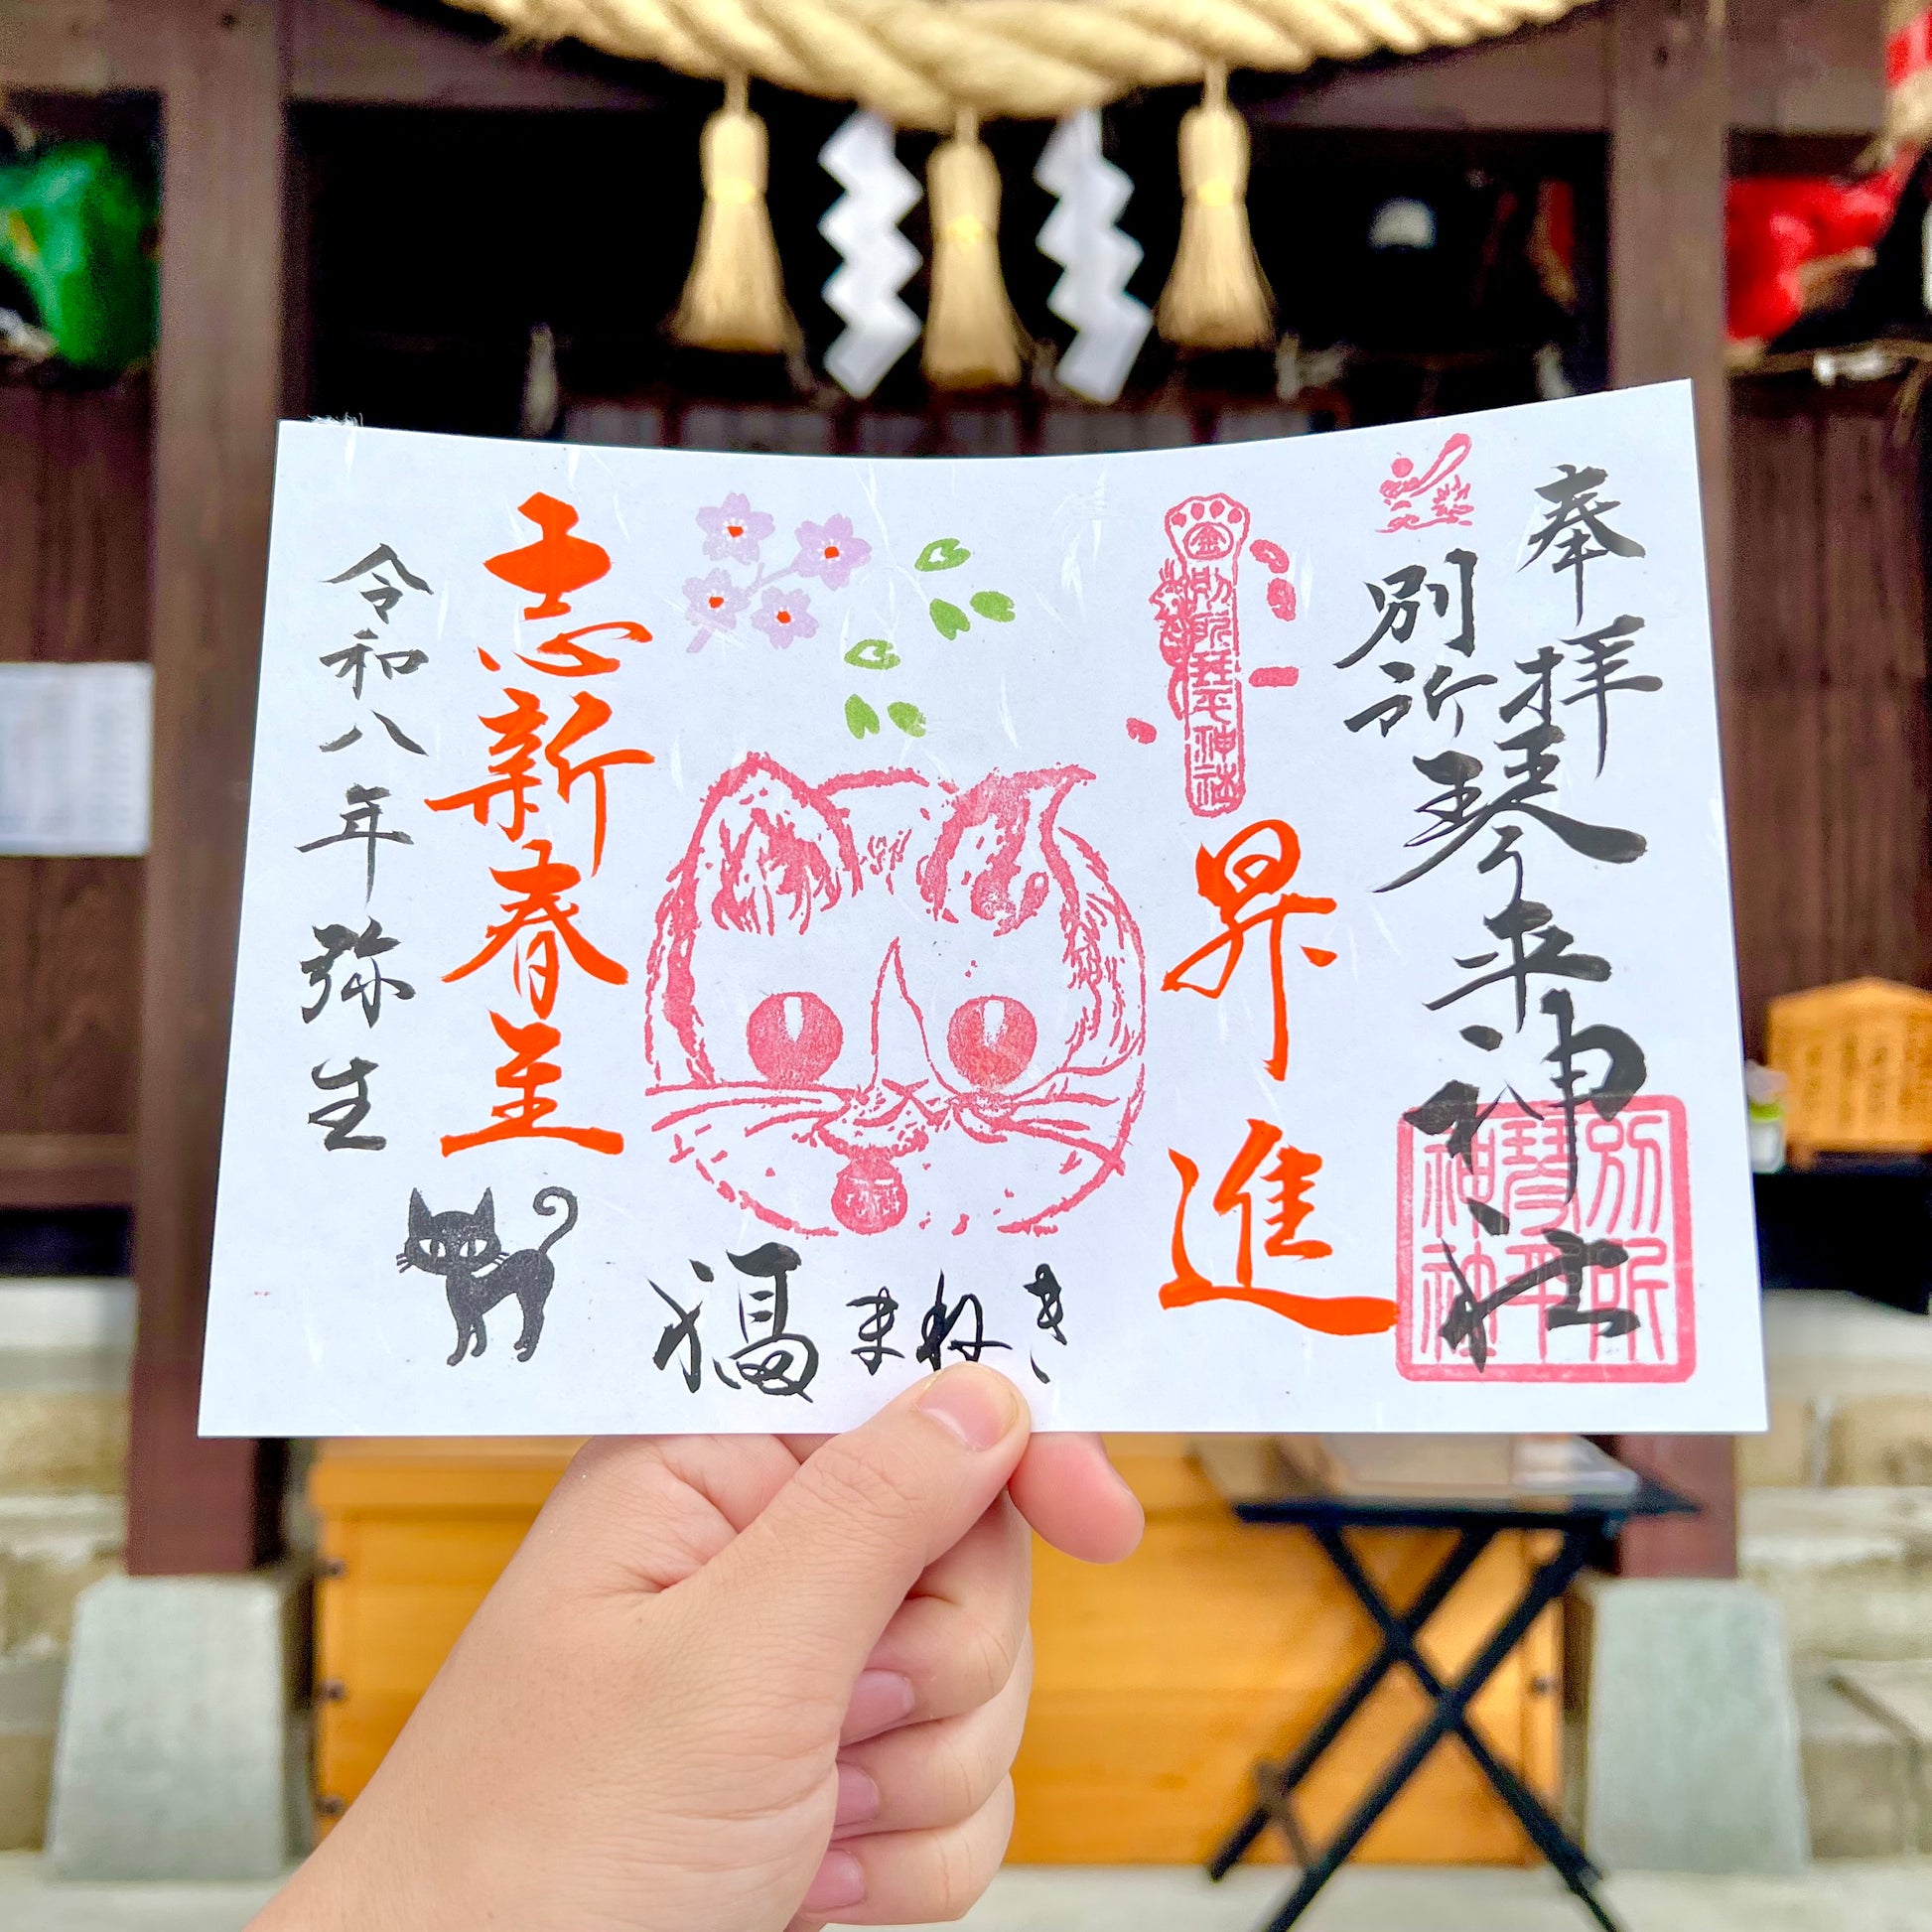 奉拝
別所
琴平神社
別所
琴平
神社
金
別所琴平神社
昇進
福まねき
志新春至
令和八年弥生